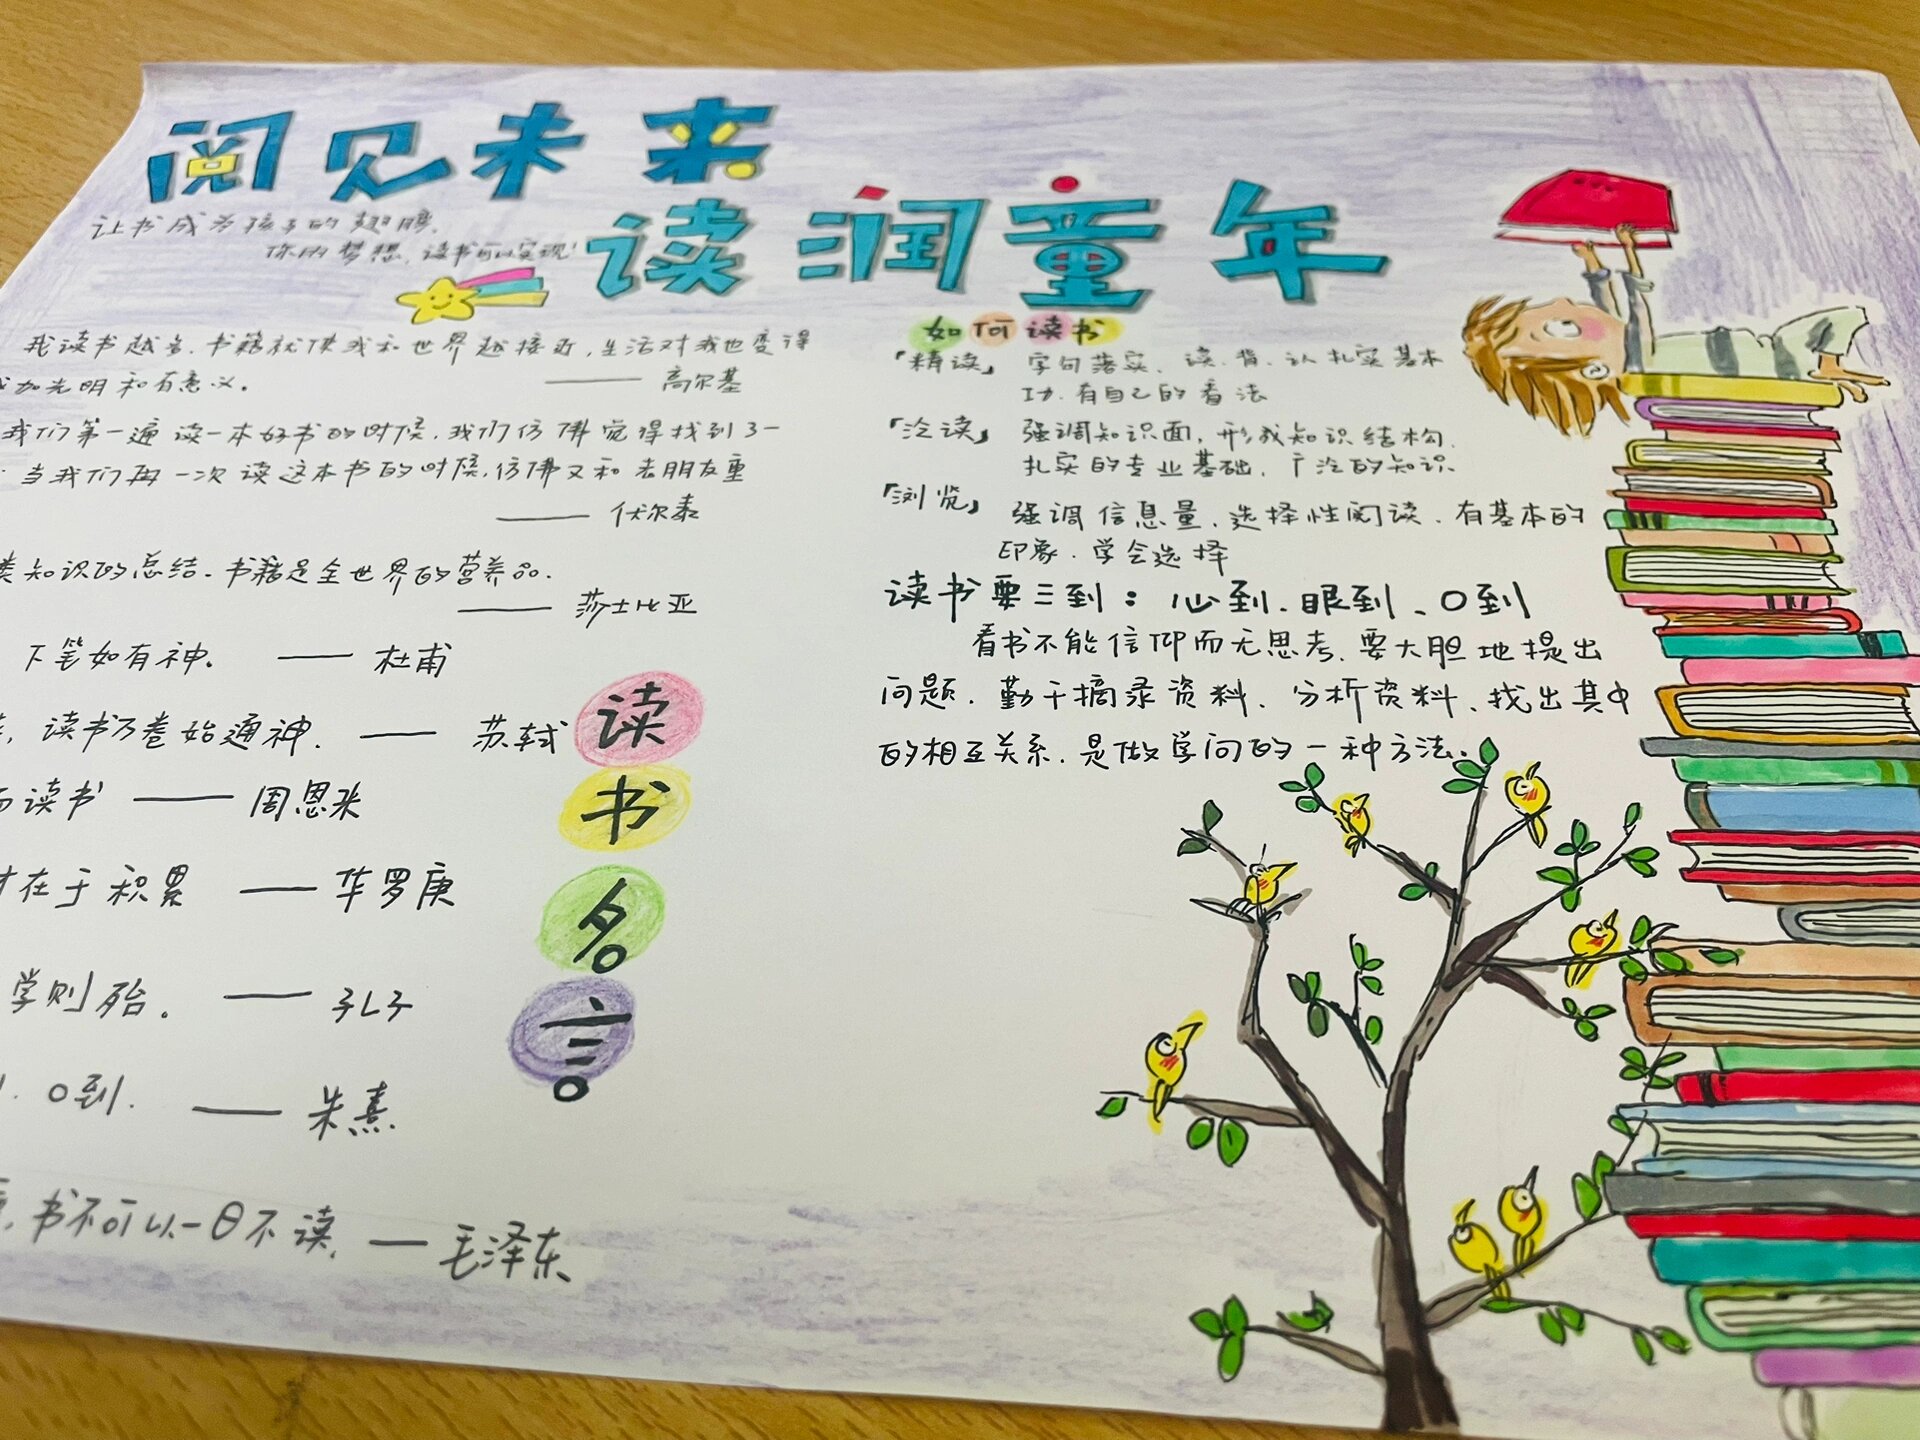 阅见未来
读润童年
让书成为孩子的翅膀,
你的梦想,读书可以实现!
我读书越多,书籍就使我和世界越接近,生活对我也变得
加光明和有意义。
——高尔基
我们第一遍读一本好书的时候,我们仿佛觉得找到了一
当我们再一次读这本书的时候,仿佛又和老朋友重
——伏尔泰
类知识的总结、书籍是全世界的营养品.
——莎士比亚
下笔如有神. ——杜甫
读书万卷始通神. ——苏轼
而读书 ——周恩来
才在于积累 ——华罗庚
学则殆。 ——孔子
口到. ——朱熹.
书不可以一日不读, —毛泽东
读
书
名
言
如何读书
「精读」 字句落实、读、背、认扎实基本
功.有自己的看法
「泛读」 强调知识面,形成知识结构.
扎实的专业基础,广泛的知识.
「浏览」 强调信息量,选择性阅读.有基本的
印象.学会选择
读书要三到:心到、眼到、口到
看书不能信仰而无思考,要大胆地提出
问题.勤于摘录资料、分析资料、找出其中
的相互关系.是做学问的一种方法.